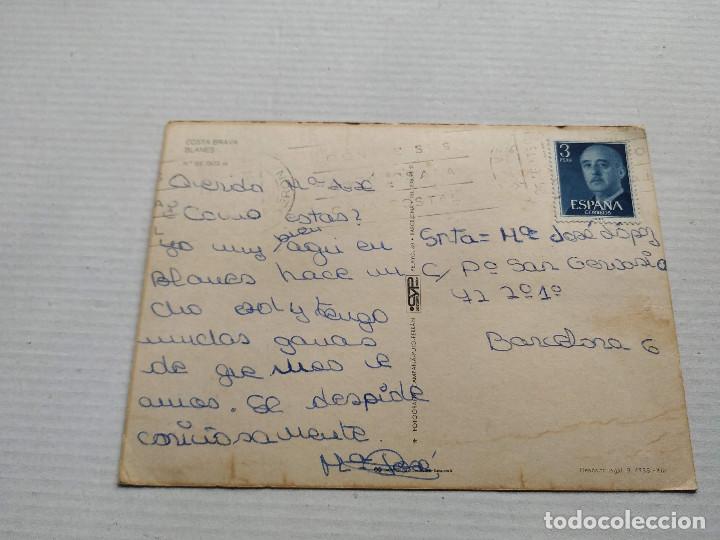 COSTA BRAVA
BLANES
Querida Mª José
¿Como estas?
yo muy bien aqui en
Blanes hace mu
cho sol y tengo
muchas ganas
de que nos ve
amos. Se despide
cariñosamente.
Mª José
3
PTAS
ESPAÑA
CORREOS
Srta = Mª José López
C/ Pº San Gervasio
72 2º 1º
Barcelona 6
CYP
todocoleccion
todocoleccion.net